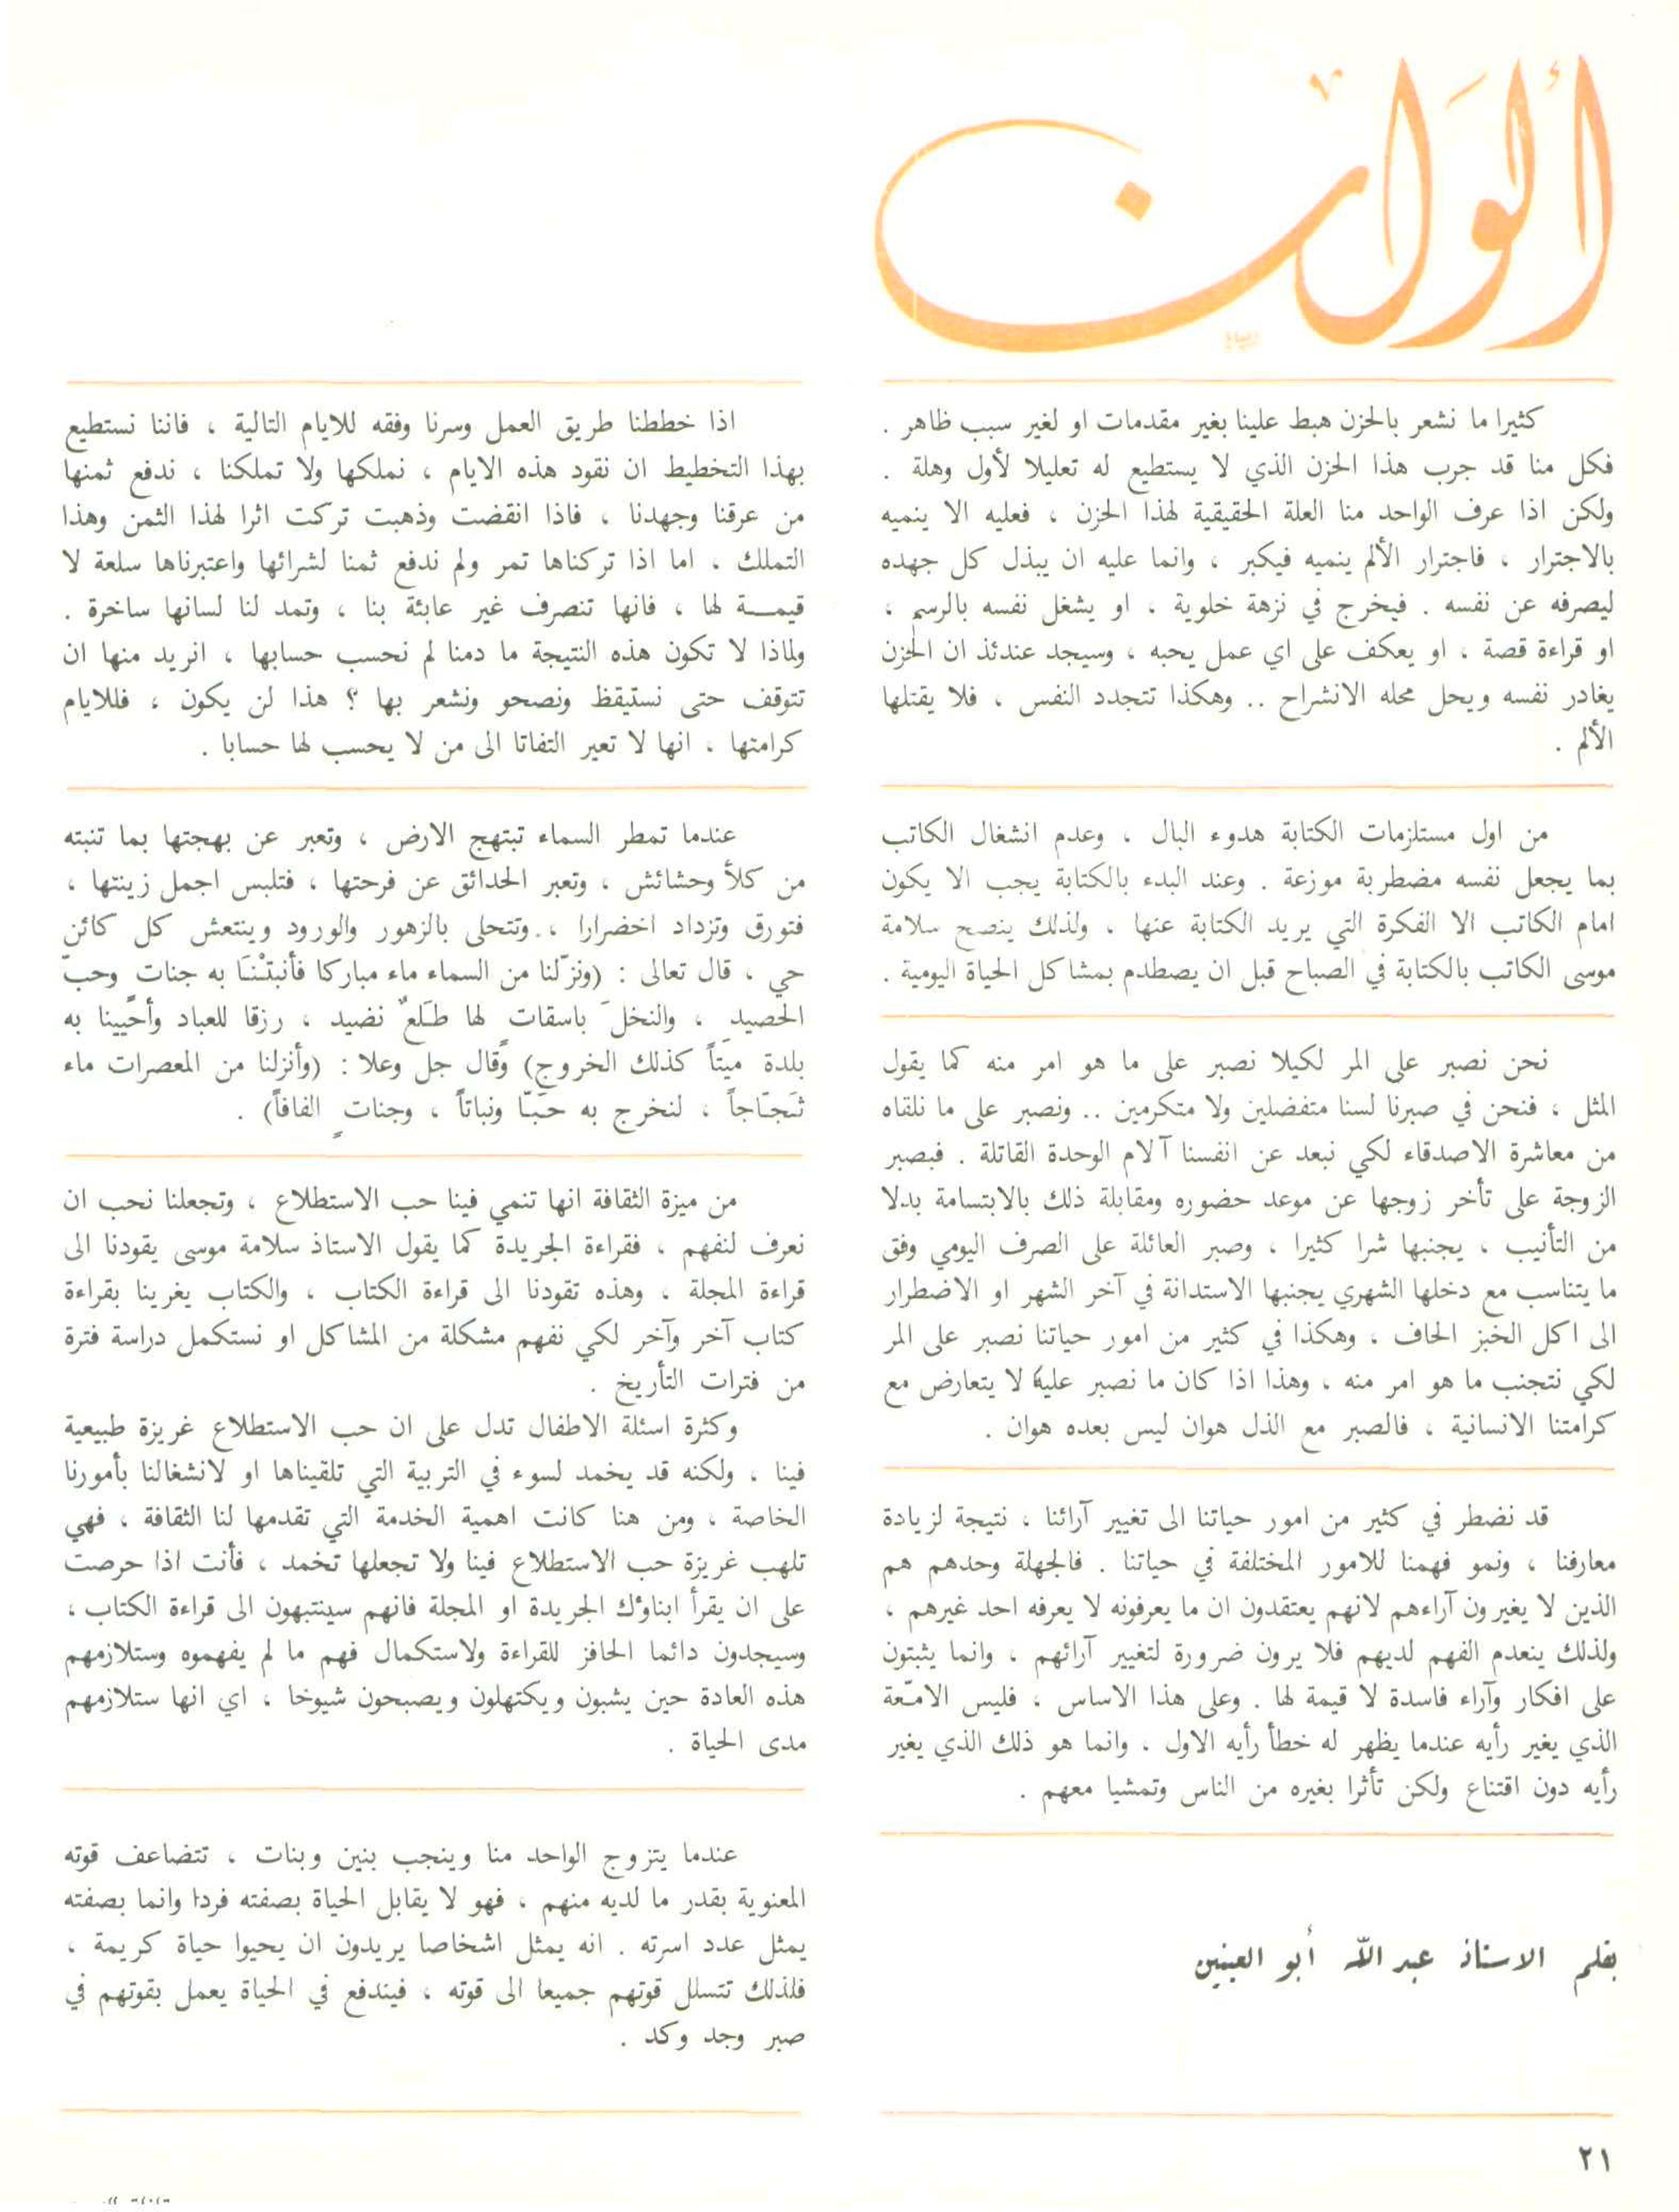 ألوَان
كثيرا ما نشعر بالحزن هبط علينا بغير مقدمات او لغير سبب ظاهر .
فكل منا قد جرب هذا الحزن الذي لا يستطيع له تعليلا لأول وهلة .
ولكن اذا عرف الواحد منا العلة الحقيقية لهذا الحزن ، فعليه الا ينميه
بالاجترار ، فاجترار الألم ينميه فيكبر ، وانما عليه ان يبذل كل جهده
ليصرفه عن نفسه . فيخرج في نزهة خلوية ، او يشغل نفسه بالرسم ،
او قراءة قصة ، او يعكف على اي عمل يحبه ، وسيجد عندئذ ان الحزن
يغادر نفسه ويحل محله الانشراح .. وهكذا تتجدد النفس ، فلا يقتلها
الألم .
من اول مستلزمات الكتابة هدوء البال ، وعدم انشغال الكاتب
بما يجعل نفسه مضطربة موزعة . وعند البدء بالكتابة يجب الا يكون
امام الكاتب الا الفكرة التي يريد الكتابة عنها ، ولذلك ينصح سلامة
موسى الكاتب بالكتابة في الصباح قبل ان يصطدم بمشاكل الحياة اليومية .
نحن نصبر على المر لكيلا نصبر على ما هو امر منه كما يقول
المثل ، فنحن في صبرنا لسنا متفضلين ولا متكرمين .. ونصبر على ما نلقاه
من معاشرة الاصدقاء لكي نبعد عن انفسنا آلام الوحدة القاتلة . فبصبر
الزوجة على تأخر زوجها عن موعد حضوره ومقابلة ذلك بالابتسامة بدلا
من التأنيب ، يجنبها شرا كثيرا ، وصبر العائلة على الصرف اليومي وفق
ما يتناسب مع دخلها الشهري يجنبها الاستدانة في آخر الشهر او الاضطرار
الى اكل الخبز الحاف ، وهكذا في كثير من امور حياتنا نصبر على المر
لكي نتجنب ما هو امر منه ، وهذا اذا كان ما نصبر عليه لا يتعارض مع
كرامتنا الانسانية ، فالصبر مع الذل هوان ليس بعده هوان .
قد نضطر في كثير من امور حياتنا الى تغيير آرائنا ، نتيجة لزيادة
معارفنا ، ونمو فهمنا للامور المختلفة في حياتنا . فالجهلة وحدهم هم
الذين لا يغيرون آراءهم لانهم يعتقدون ان ما يعرفونه لا يعرفه احد غيرهم ،
ولذلك ينعدم الفهم لديهم فلا يرون ضرورة لتغيير آرائهم ، وانما يثبتون
على افكار وآراء فاسدة لا قيمة لها . وعلى هذا الاساس ، فليس الامّعة
الذي يغير رأيه عندما يظهر له خطأ رأيه الاول ، وانما هو ذلك الذي يغير
رأيه دون اقتناع ولكن تأثرا بغيره من الناس وتمشيا معهم .
بقلم الاستاذ عبد الله أبو العينين
اذا خططنا طريق العمل وسرنا وفقه للايام التالية ، فاننا نستطيع
بهذا التخطيط ان نقود هذه الايام ، نملكها ولا تملكنا ، ندفع ثمنها
من عرقنا وجهدنا ، فاذا انقضت وذهبت تركت اثرا لهذا الثمن وهذا
التملك ، اما اذا تركناها تمر ولم ندفع ثمنا لشرائها واعتبرناها سلعة لا
قيمــة لها ، فانها تنصرف غير عابئة بنا ، وتمد لنا لسانها ساخرة .
ولماذا لا تكون هذه النتيجة ما دمنا لم نحسب حسابها ، انريد منها ان
تتوقف حتى نستيقظ ونصحو ونشعر بها ؟ هذا لن يكون ، فللايام
كرامتها ، انها لا تعير التفاتا الى من لا يحسب لها حسابا .
عندما تمطر السماء تبتهج الارض ، وتعبر عن بهجتها بما تنبته
من كلأ وحشائش ، وتعبر الحدائق عن فرحتها ، فتلبس اجمل زينتها ،
فتورق وتزداد اخضرارا ، وتتحلى بالزهور والورود وينتعش كل كائن
حي ، قال تعالى : (ونزّلنا من السماء ماء مباركا فأنبتْنَا به جنات وحبّ
الحصيدِ ، والنخلَ باسقاتٍ لها طَلعٌ نضيد ، رزقا للعباد وأحْيينا به
بلدة ميتاً كذلك الخروج) وقال جل وعلا : (وأنزلنا من المعصرات ماء
ثَجّاجاً ، لنخرج به حَبّا ونباتاً ، وجناتٍ الفافاً) .
من ميزة الثقافة انها تنمي فينا حب الاستطلاع ، وتجعلنا نحب ان
نعرف لنفهم ، فقراءة الجريدة كما يقول الاستاذ سلامة موسى يقودنا الى
قراءة المجلة ، وهذه تقودنا الى قراءة الكتاب ، والكتاب يغرينا بقراءة
كتاب آخر وآخر لكي نفهم مشكلة من المشاكل او نستكمل دراسة فترة
من فترات التأريخ .
وكثرة اسئلة الاطفال تدل على ان حب الاستطلاع غريزة طبيعية
فينا ، ولكنه قد يخمد لسوء في التربية التي تلقيناها او لانشغالنا بأمورنا
الخاصة ، ومن هنا كانت اهمية الخدمة التي تقدمها لنا الثقافة ، فهي
تلهب غريزة حب الاستطلاع فينا ولا تجعلها تخمد ، فأنت اذا حرصت
على ان يقرأ ابناوءك الجريدة او المجلة فانهم سينتبهون الى قراءة الكتاب ،
وسيجدون دائما الحافز للقراءة ولاستكمال فهم ما لم يفهموه وستلازمهم
هذه العادة حين يشبون ويكتهلون ويصبحون شيوخا ، اي انها ستلازمهم
مدى الحياة .
عندما يتزوج الواحد منا وينجب بنين وبنات ، تتضاعف قوته
المعنوية بقدر ما لديه منهم ، فهو لا يقابل الحياة بصفته فردا وانما بصفته
يمثل عدد اسرته . انه يمثل اشخاصا يريدون ان يحيوا حياة كريمة ،
فلذلك تتسلل قوتهم جميعا الى قوته ، فيندفع في الحياة يعمل بقوتهم في
صبر وجد وكد .
٢١